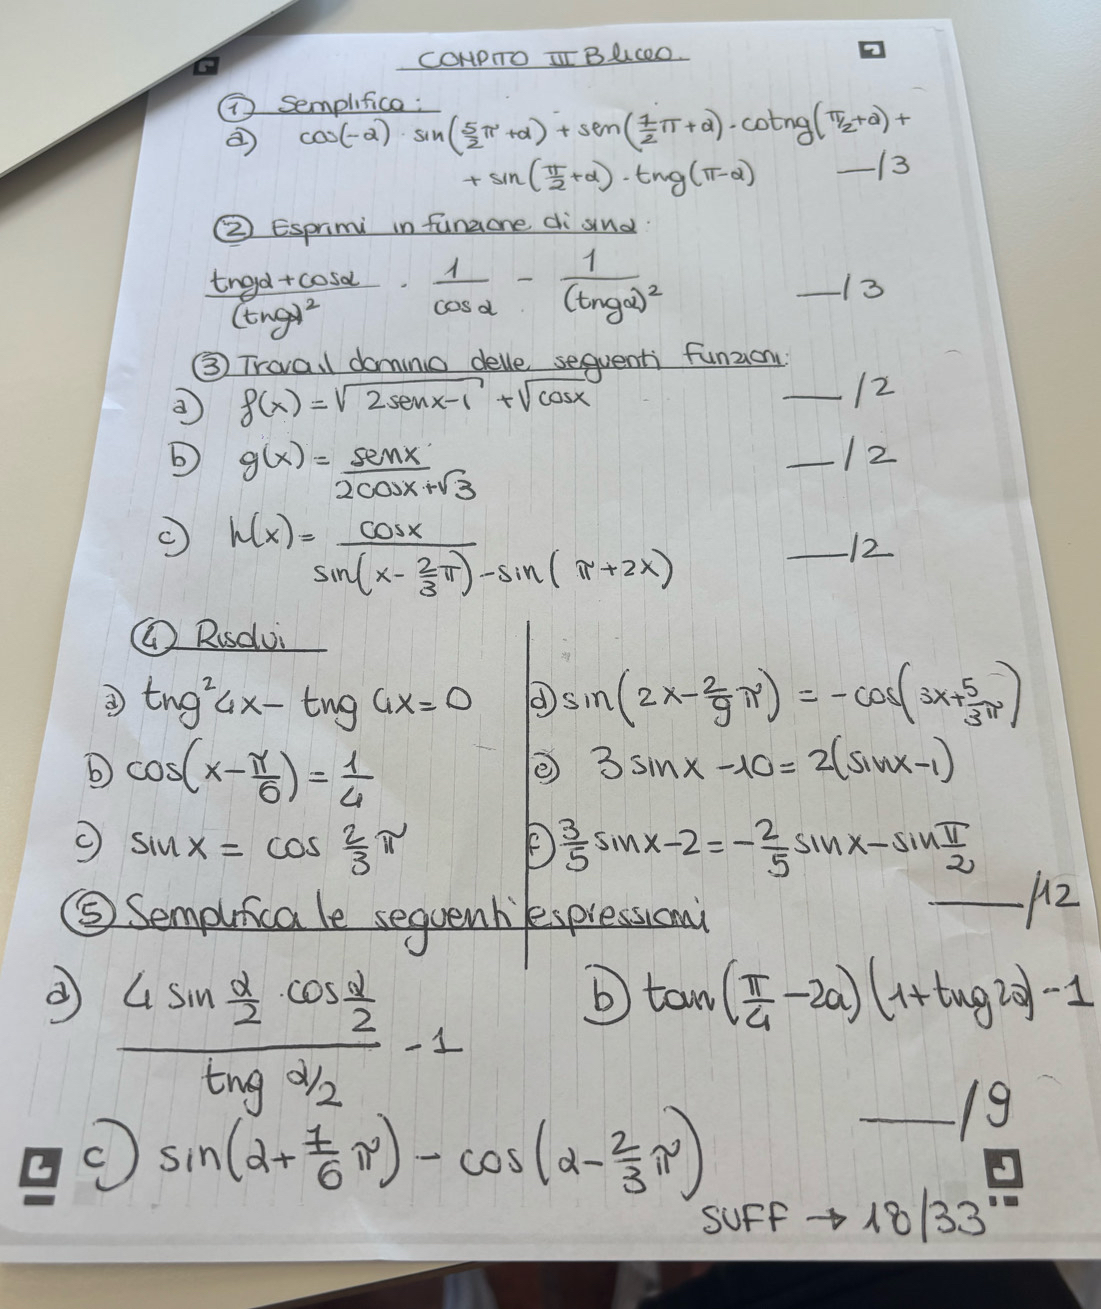 COMPITO III B liceo.
① Semplifica:
a) cos(-α) · sin(5/2 π + α) + sen(1/2 π + α) · cotng(π/2 + α) +
+ sin(π/2 + α) · tng(π - α) —/3
② Esprimi in funzione di sinα.
(tngα + cosα)/(tng)² · 1/cosα - 1/(tngα)² —/3
③ Trova il dominio delle seguenti funzioni:
a) f(x) = √(2senx-1) + √cosx —/2
b) g(x) = senx/(2cosx+√3) —/2
c) h(x) = cosx/(sin(x - 2/3 π) - sin(π + 2x)) —/2
④ Risolvi
a) tng²4x - tng 4x = 0
b) cos(x - π/6) = 1/4
c) sin x = cos 2/3 π
d) sin(2x - 2/9 π) = -cos(3x + 5/3 π)
e) 3 sinx - 10 = 2(sinx - 1)
f) 3/5 sinx - 2 = -2/5 sinx - sin π/2
—/12
⑤ Semplifica le seguenti espressioni
a) (4 sin α/2 · cos α/2)/(tng α/2) - 1
b) tan(π/4 - 2α)(1 + tng 2α) - 1
—/9
c) sin(α + 1/6 π) - cos(α - 2/3 π)
SUFF → 18/33